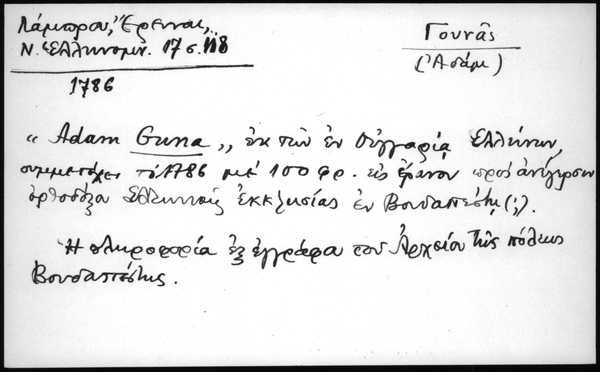 Λάμπρου, Ἔρευναι,
Ν. Ἑλληνομν. 17 σ. 118
1786
Γουνᾶς
(Ἀδάμ)
« Adam Guna „ ἐκ τῶν ἐν Οὑγγαρίᾳ Ἑλλήνων,
συμμετέχει τό 1786 μέ 100 φρ. εἰς ἔρανον πρός ἀνέγερσιν
ὀρθοδόξου Ἑλληνικῆς ἐκκλησίας ἐν Βουδαπέστῃ (;).
Ἡ πληροφορία ἐξ ἐγγράφου τοῦ Ἀρχείου τῆς πόλεως
Βουδαπέστης.